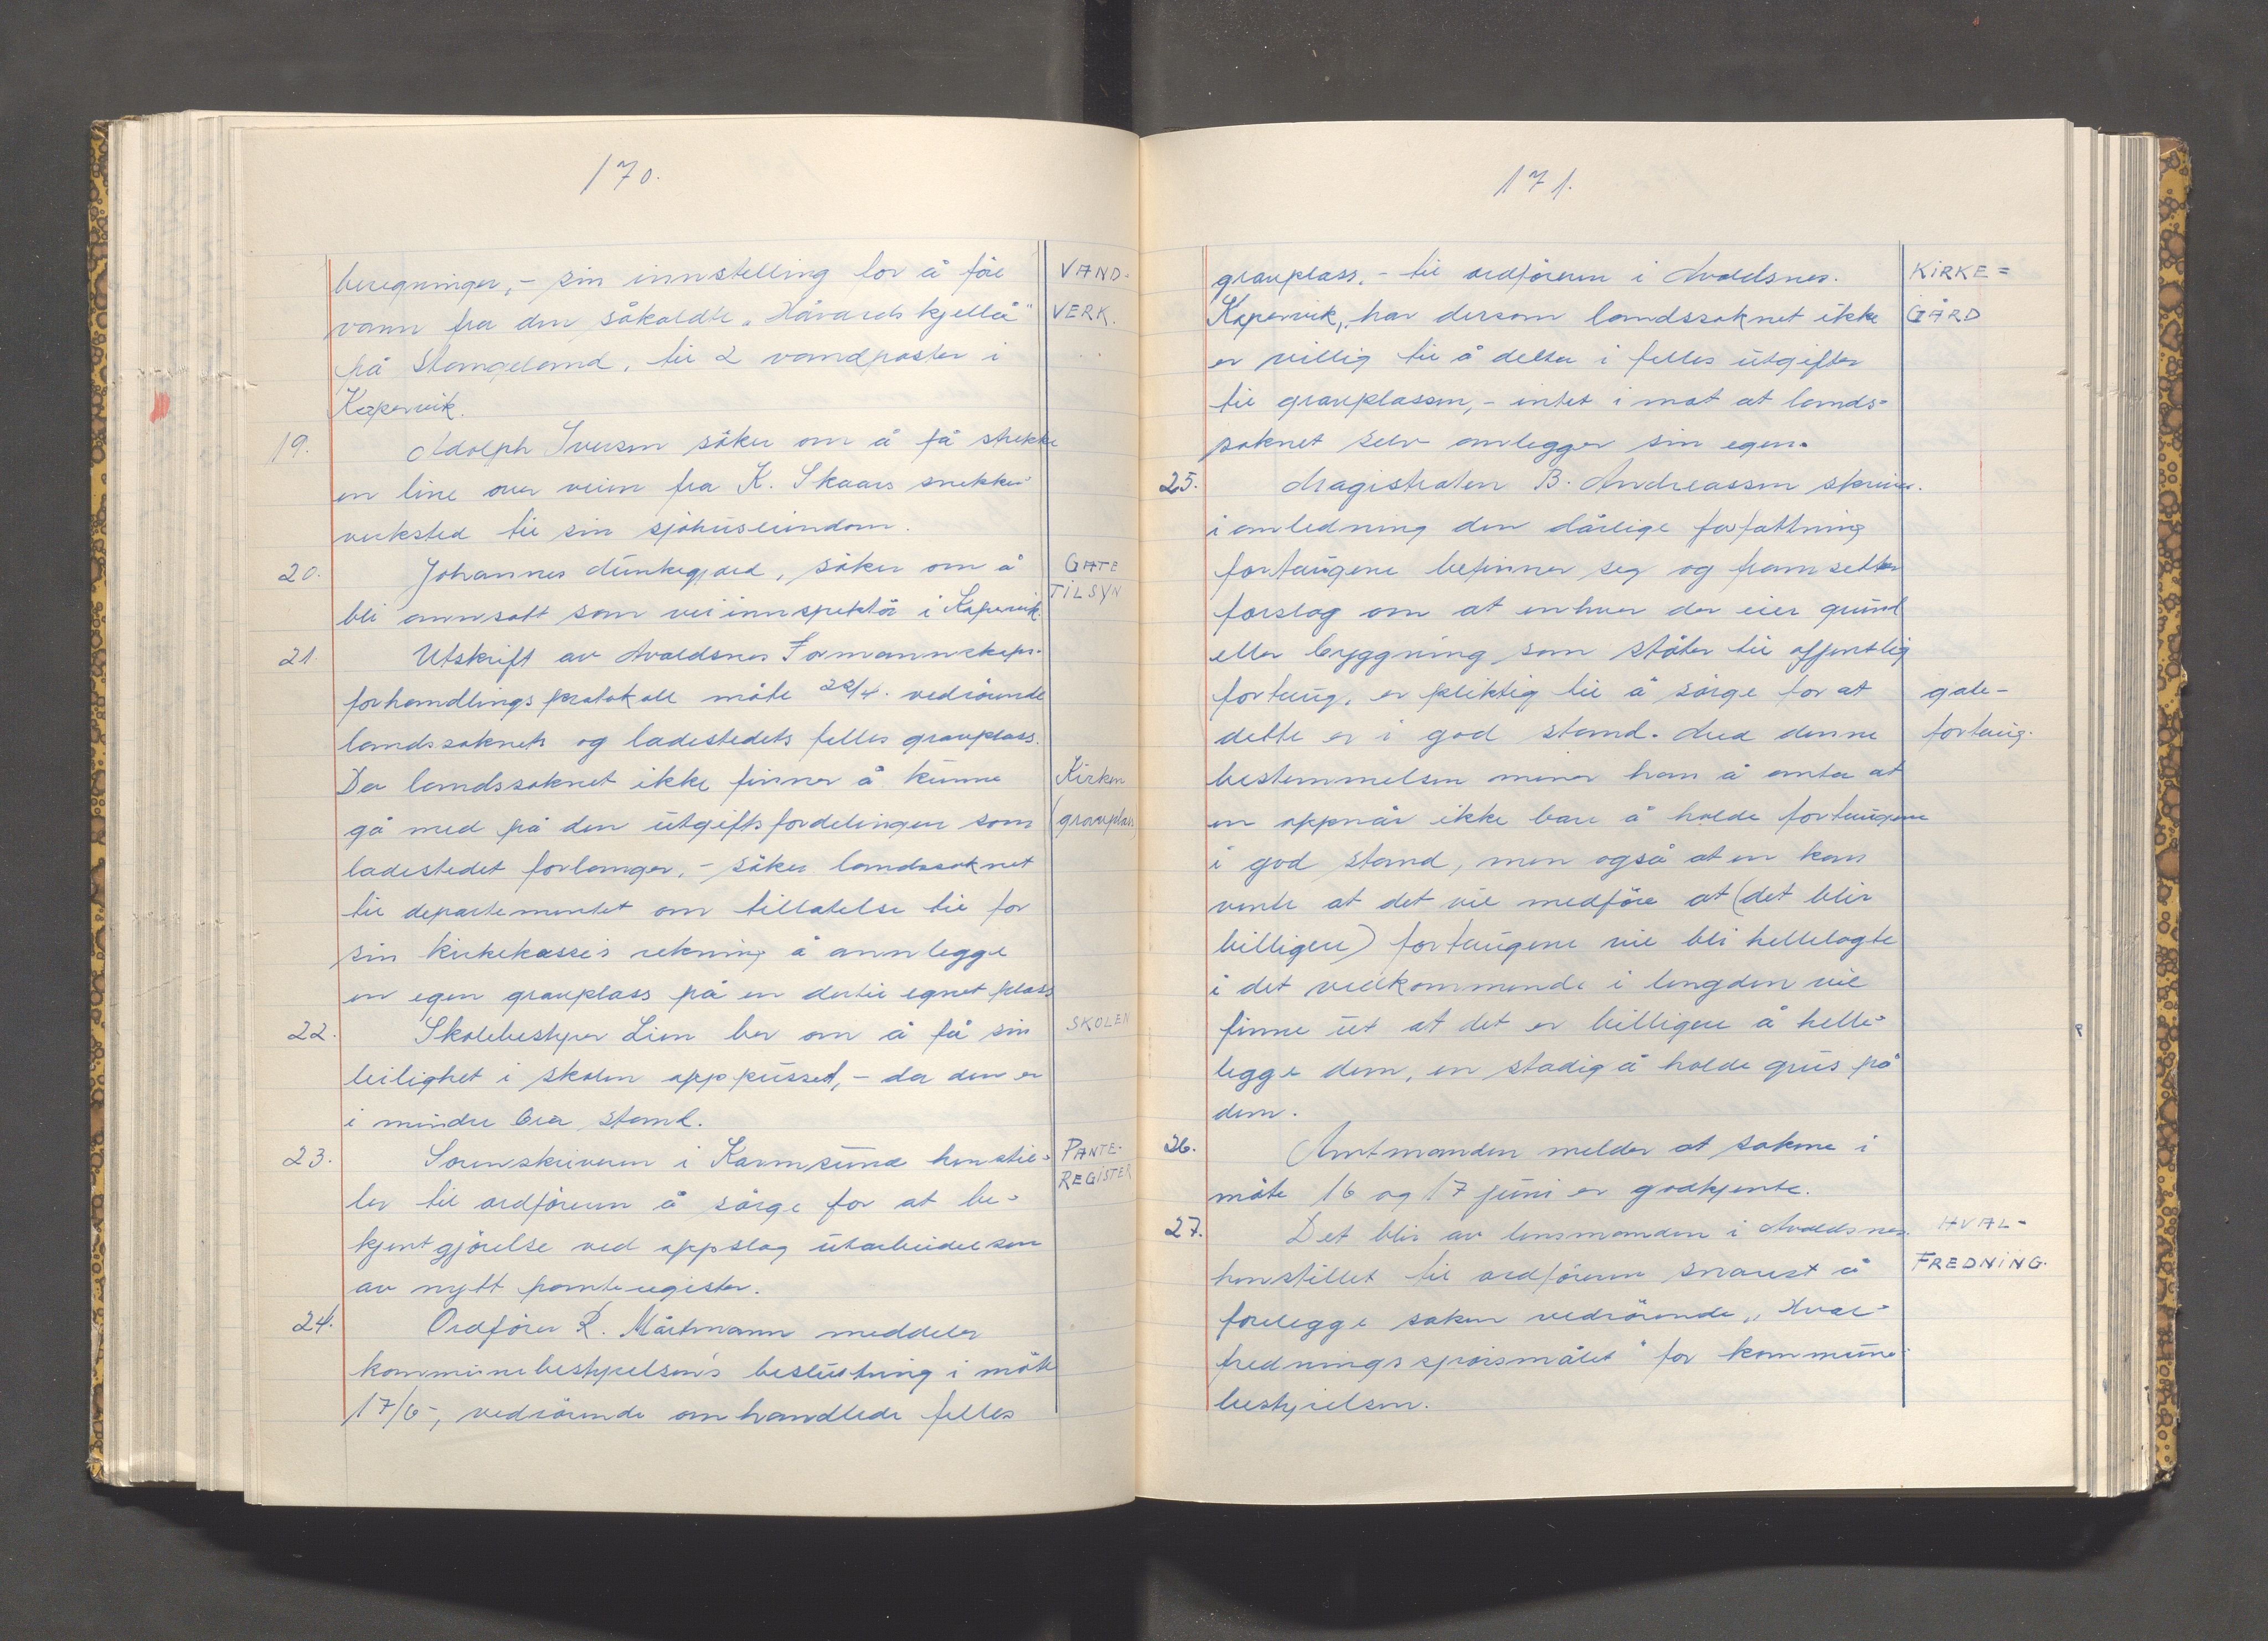 170.
beregninger, - sin innstelling for å före
vann fra den såkaldte "Håvards kjellå"
på Stangeland, til 2 vandposter i
Kopervik.
VAND-
VERK.
19. Adolph Iversen söker om å få strekke
en line over veien fra K. Skaars snekker
verksted til sin sjöhuseiendom.
20. Johannes Munkejord, söker om å
bli annsatt som veiinnspektör i Kopervik.
GATE
TILSYN
21. Utskrift av Avaldsnes Formannskaps-
forhandlingsprotokoll möte 22/4. vedrörende
landssoknets og ladestedets felles gravplass.
Da landssoknet ikke finner å kunne
gå med på den utgiftsfordelingen som
ladestedet forlanger, - söker landssoknet
til departementet om tillatelse til for
sin kirkekasse's rekning å annlegge
en egen gravplass på en dertil egnet plass
Kirken
(gravplass)
22. Skolebestyrer Lien ber om å få sin
leilighet i skolen oppusset, - da den er
i mindre bra stand.
SKOLEN
23. Sorenskriveren i Karmsund henstil-
ler til ordföreren å sörge for at be-
kjentgjörelse ved oppslag utarbeidelsen
av nytt panteregister.
PANTE-
REGISTER
24. Ordförer R. Mårtmann meddeler
kommunebestyrelsen's beslutning i möte
17/6-, vedrörende omhandlede felles
171.
gravplass, - til ordföreren i Avaldsnes.
Kopervik, har dersom landssoknet ikke
er villig til å delta i felles utgifter
til gravplassen, - intet i mot at lands-
soknet selv anlegger sin egen.
KIRKE=
GÅRD
25. Magistraten B. Andreassen skriver.
i anledning den dårlige forfattning
fortaugene befinner seg og framsetter
forslag om at enhver der eier grund
eller byggning som stöter til offentlig
fortaug, er pliktig til å sörge for at
dette er i god stand. Med denne
bestemmelsen mener han å anta at
en oppnår ikke bare å holde fortaugene
i god stand, men også at en kan
vente at det vil medföre at (det blir
billigere) fortaugene vil bli hellelagte
i det vedkommende i lengden vil
finne ut at det er billigere å helle-
legge dem, en stadig å holde grus på
dem.
gate-
fortaug.
26. Amtmanden melder at sakene i
möte 16 og 17 juni er godkjente.
27. Det blir av lensmanden i Avaldsnes.
henstillet til ordföreren snarest å
forelegge saken vedrörende "Hval-
fredningsspörsmålet" for kommune-
bestyrelsen.
HVAL-
FREDNING.